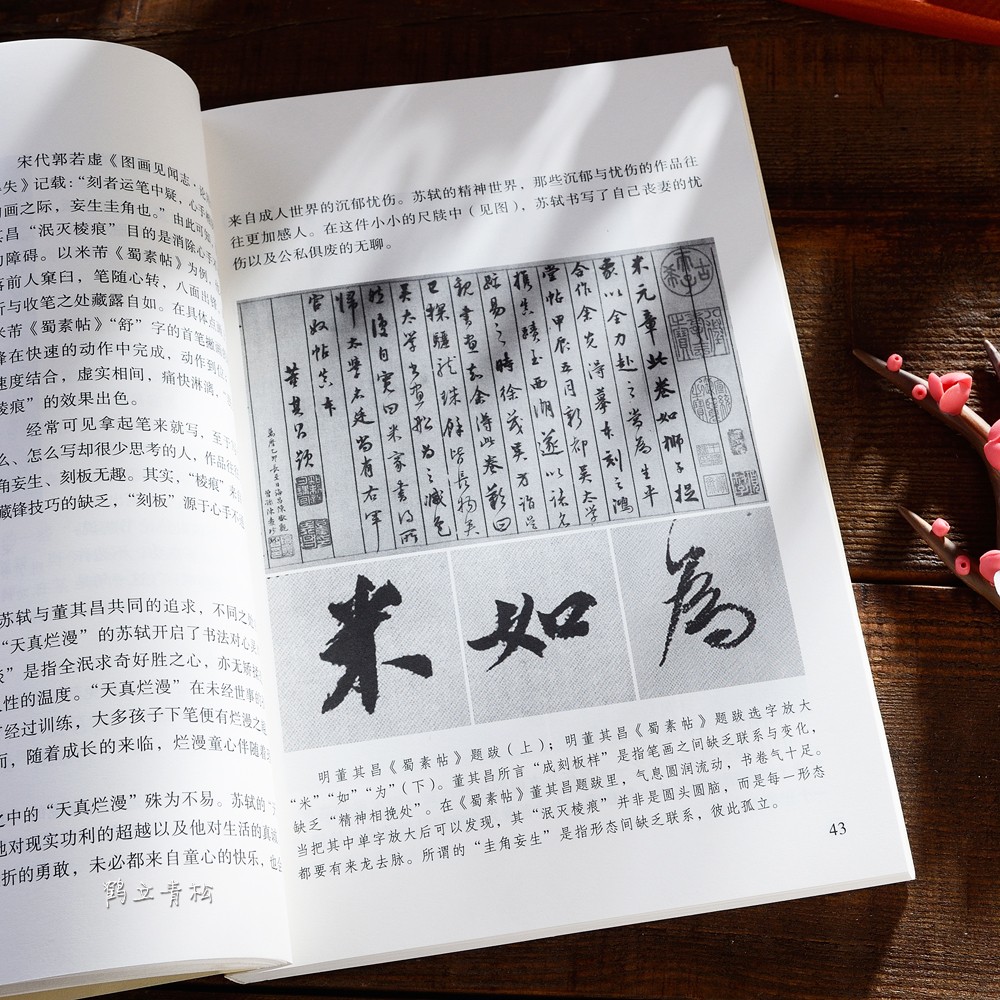 宋代郭若虚《图画见闻志·论
失》记载:“刻者运笔中疑，心手
画之际，妄生圭角也。”由此可
其昌“泯灭棱痕”目的是消除心手
的障碍。以米芾《蜀素帖》为例，
落前人窠臼，笔随心转，八面出
折与收笔之处藏露自如。在具体
米芾《蜀素帖》“舒”字的首笔
锋在快速的动作中完成，动作到
速度结合，虚实相间，痛快淋漓，
棱痕”的效果出色。
经常可见拿起笔来就写，至于
么、怎么写却很少思考的人，作品
角妄生、刻板无趣。其实，“棱痕”来
藏锋技巧的缺乏，“刻板”源于心手不
苏轼与董其昌共同的追求，不同之
“天真烂漫”的苏轼开启了书法对心
”是指全泯求奇好胜之心，亦无矫
性的温度。“天真烂漫”在未经世事的
经过训练，大多孩子下笔便有烂漫之
而，随着成长的来临，烂漫童心伴随着
之中的“天真烂漫”殊为不易。苏轼的“
他对现实功利的超越以及他对生活的真
折的勇敢，未必都来自童心的快乐，也
来自成人世界的沉郁忧伤。苏轼的精神世界，那些沉郁与忧伤的作品往
往更加感人。在这件小小的尺牍中（见图），苏轼书写了自己丧妻的忧
伤以及公私俱废的无聊。
米元章此卷如獅子捉
象以全力赴之當為生平
合作余先得摹本刻之鴻
堂帖甲辰五月新都吳太學
攜真蹟至西湖遂以諸名
跡易之時徐茂吳方詣吳
觀書畫知余得此卷歎曰
已探驪龍珠餘皆長物矣
吳太學書畫船為之減色
然復自寬曰米家書得所
歸太學名廷尚有右軍
官奴帖真本
董其昌題
米 如 為
明董其昌《蜀素帖》题跋（上）；明董其昌《蜀素帖》题跋选字放大
“米”“如”“为”（下）。董其昌所言“成刻板样”是指笔画之间缺乏联系与变化，
缺乏“精神相挽处”。在《蜀素帖》董其昌题跋里，气息圆润流动，书卷气十足。
当把其中单字放大后可以发现，其“泯灭棱痕”并非是圆头圆脑，而是每一形态
都要有来龙去脉。所谓的“圭角妄生”是指形态间缺乏联系，彼此孤立。
43
鹤立青松